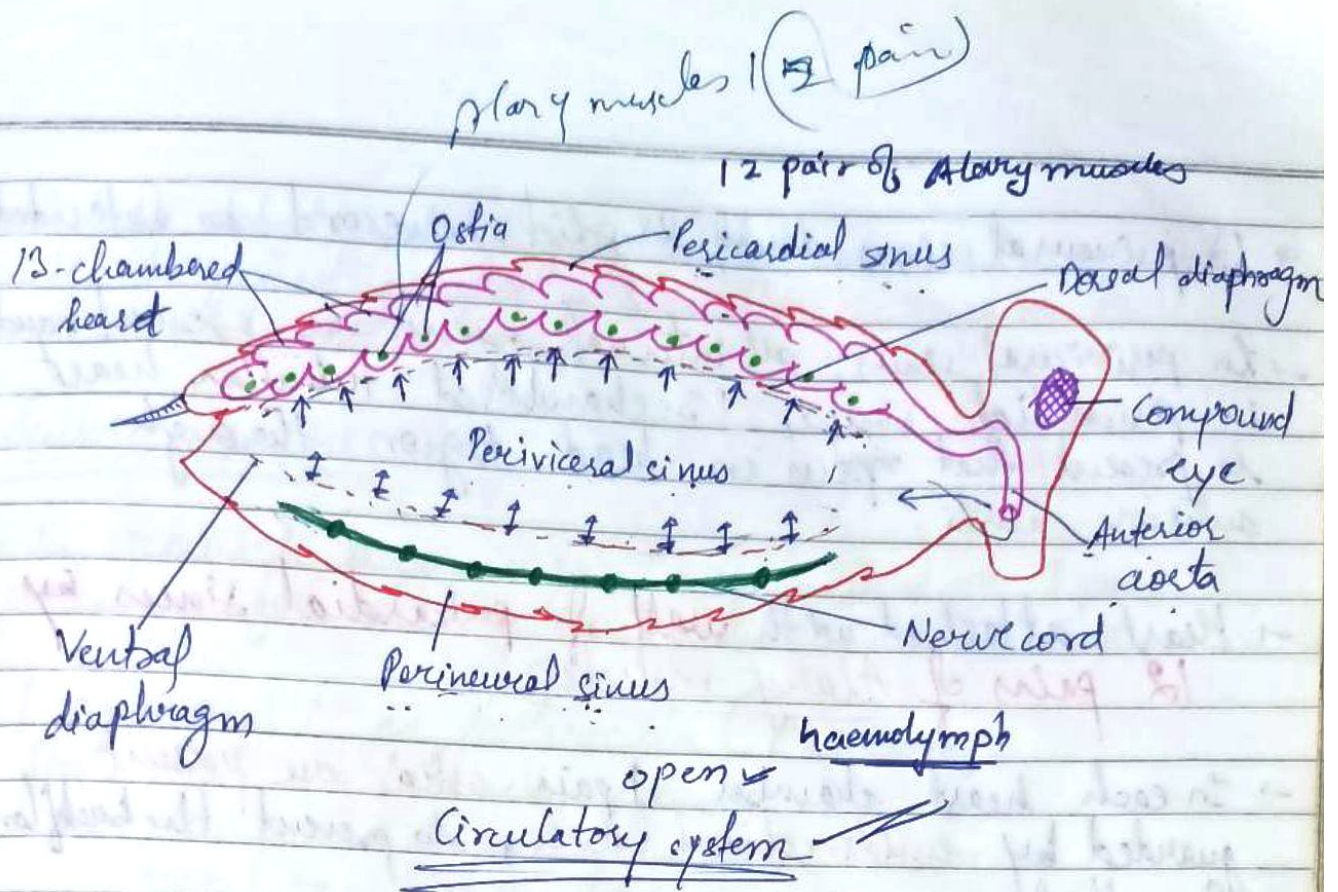 Alary muscles 1(2 pair)
12 pair of Alary muscles
Ostia
Pericardial sinus
13-chambered
heart
Dorsal diaphragm
Compound
eye
Periviceral sinus
Anterior
aorta
Nerve cord
Ventral
diaphragm
Perineural sinus
haemolymph
open
Circulatory system